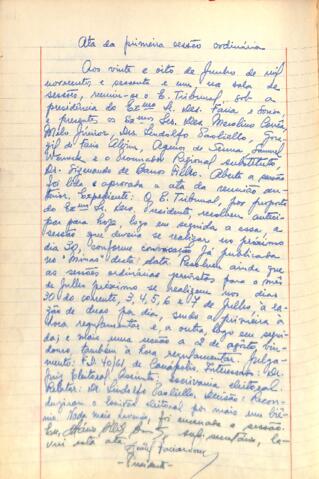 Ata da primeira sessão ordinária
Aos vinte e oito de Junho de mil
novecentos e sessenta e um, na sala de
sessões, reuniu-se o E. Tribunal, sob a
presidência do Exmo Sr. Des. Faria e Sousa
e presentes, os Exmos Srs. Des. Merolino Corrêa,
Melo Júnior, Drs. Lindolfo Paoliello, Gor-
gil de Faria Alvim, Aquino de Senna, Samuel
Werneck e o Procurador Regional substituto,
Dr. Fernando de Barros Filho. Aberta a sessão
foi lida e aprovada a ata da reunião an-
terior. Expediente: O E. Tribunal, por proposta
do Exmo Sr. Des. Presidente, resolveu anteci-
par para hoje, logo em seguida a essa, a
sessão que deveria se realizar no próximo
dia 30, conforme convocação já publicada
no "Minas" desta data. Resolveu ainda que
as sessões ordinárias previstas para o mês
de Julho próximo se realizem nos dias
30 do corrente, 3, 4, 5, 6 e 7 de Julho, à ra-
zão de duas por dia, sendo a primeira à
hora regulamentar e, a outra, logo em segui-
da; e mais uma sessão a 2 de agosto, vin-
douro, também à hora regulamentar. Julga-
mento: 40/61 de Canápolis. Interessado: Dr.
Juiz Eleitoral. Assunto: escrivania eleitoral.
Relator: Dr. Lindolfo Paoliello. Decisão: Recon-
duziram o escrivão eleitoral por mais um biê-
nio. Nada mais havendo, foi encerrada a sessão.
Eu, secretário, la-
vrei esta ata.
Presidente